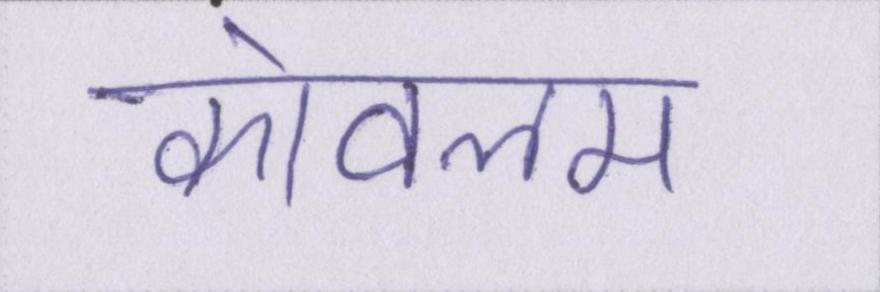 कोवलम